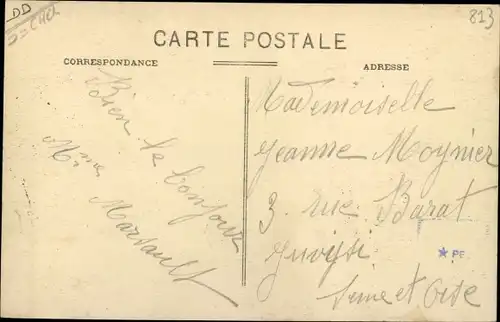 DD
813
CARTE POSTALE
CORRESPONDANCE
ADRESSE
Bien le bonjour
Mme Marsault
Mademoiselle
Jeanne Moynier
3. rue Barat
Juvisi
Seine et Oise
PF